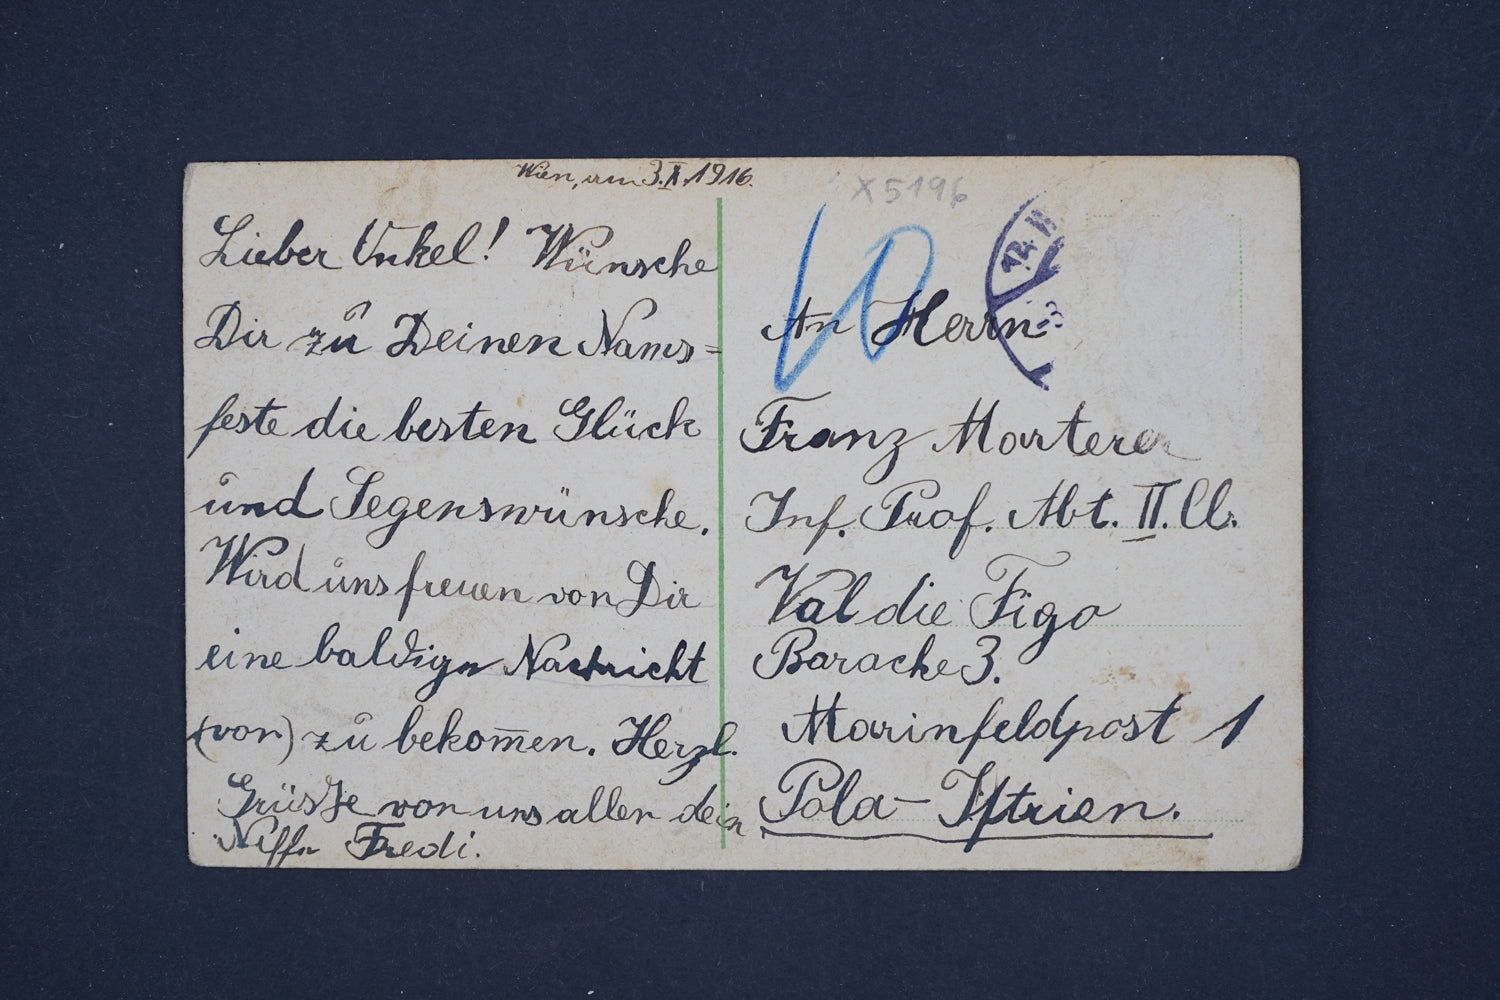 Wien, am 3.X.1916.
Lieber Onkel! Wünsche
Dir zu Deinen Nams=
feste die besten Glück
und Segenswünsche.
Wird uns freuen von Dir
eine baldige Nachricht
(von) zu bekom̅en. Herzl.
Grüsse von uns allen dein
Neffe Fredi.
X5196
10
12
An Herrn
Franz Marterer
Inf. Prof. Abt. II. Cl.
Val die Figo
Baracke 3.
Marinfeldpost 1
Pola - Istrien.